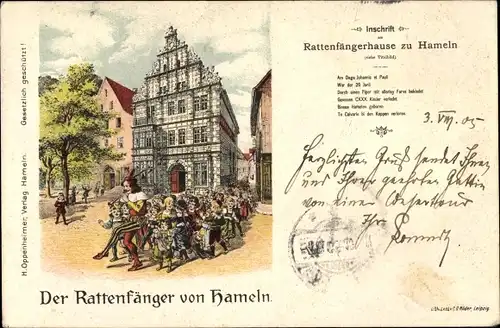 Gesetzlich geschützt!
H. Oppenheimer, Verlag, Hameln.
Inschrift
am
Rattenfängerhause zu Hameln
(siehe Titelbild)
Am Dage Johannis et Pauli
War der 26 Junii
Durch einen Piper mit allerley Farve bekledet
Gewesen CXXX Kinder verledet
Binnen Hameln geboren
To Calvarie bi den Koppen verloren.
3. VIII. 05
Herzlichsten Gruß sendet Ihnen
und Ihrer geehrten Gattin
von einer Wesertour
Ihr
Der Rattenfänger von Hameln.
Leipzig.